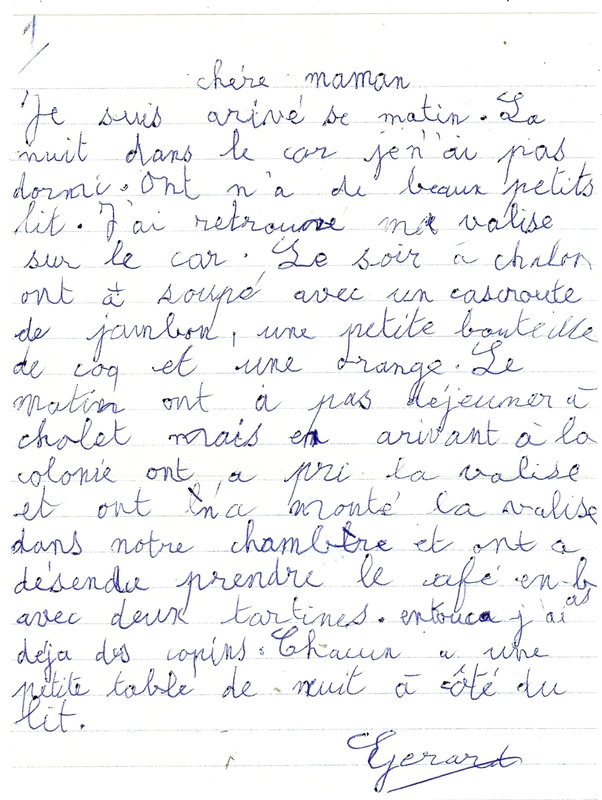 1
chére maman
Je suis arivé se matin. La
nuit dans le car je n'ai pas
dormi. Ont n'a de beaux petits
lit. J'ai retrouvé ma valise
sur le car. Le soir à chalon
ont à soupé avec un cascroute
de jambon, une petite bouteille
de coq et une orange. Le
matin ont à pas déjeuner à
cholet mais en arivant à la
colonie ont a pri la valise
et ont n'a monté la valise
dans notre chambre et ont a
désendu prendre le café en b
avec deux tartines. entouca j'ai as
déja des copins. Chacun a une
petite table de nuit à côté du
lit.
Gerard